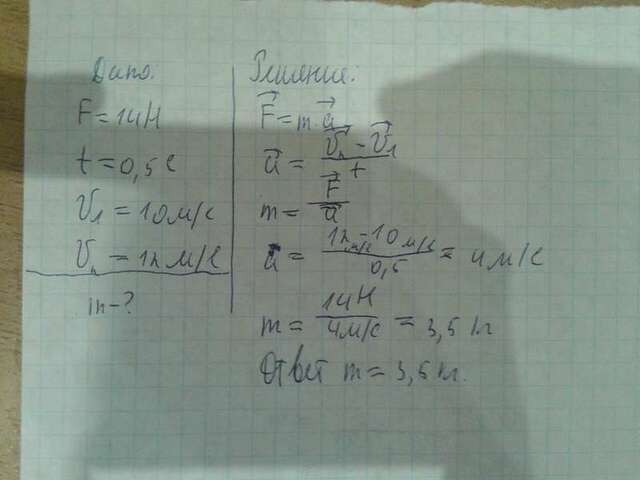 Дано:
F = 14 Н
t = 0,5 с
V₁ = 10 м/с
V₂ = 12 м/с
m - ?
Решение:
F⃗ = m·a⃗
a⃗ = (V⃗₂ - V⃗₁)/t
m = F⃗/a⃗
a = (12 м/с - 10 м/с)/0,5 = 4 м/с
m = 14 Н/4 м/с = 3,5 кг
Ответ m = 3,5 кг.